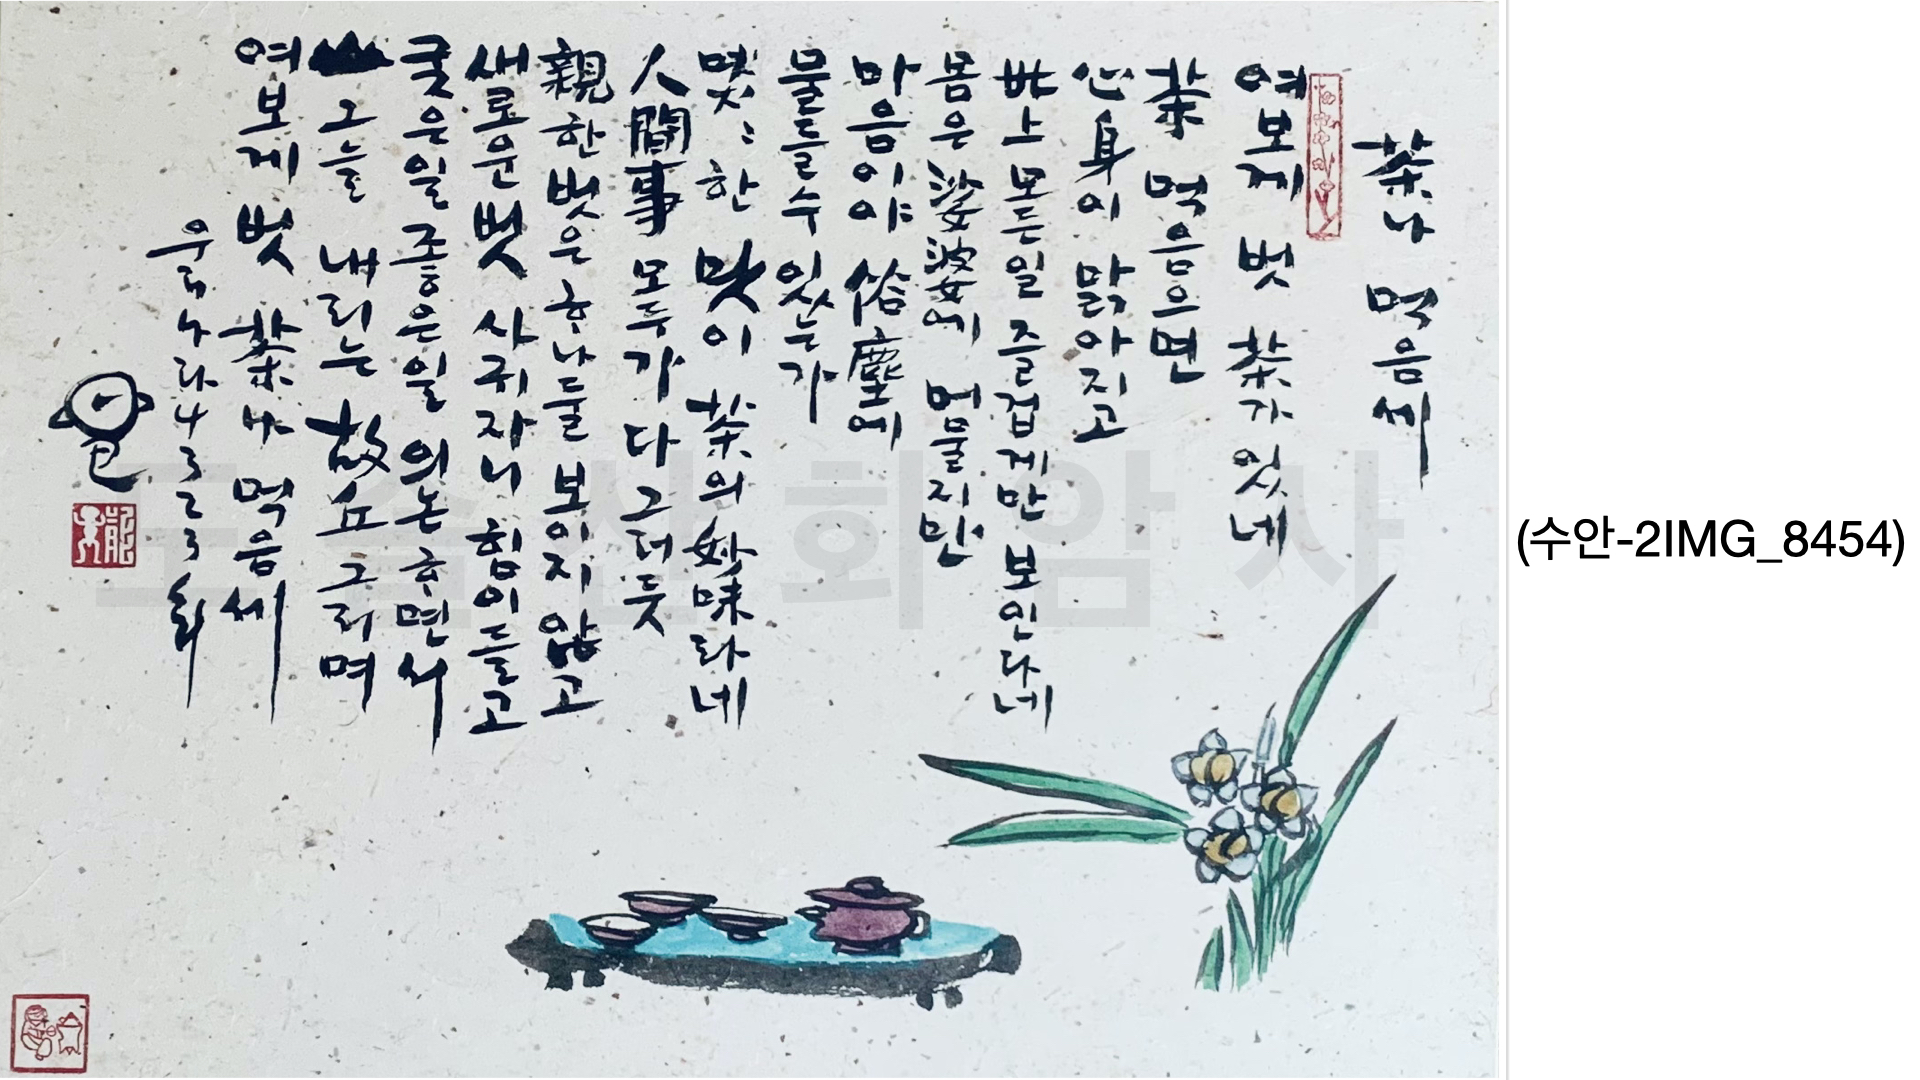 茶나 먹음세
여보게 벗 茶가 있네
茶 먹음으면
心身이 맑아지고
世上 모든일 즐겁게만 보인다네
몸은 娑婆에 머물지만
마음이야 俗塵에
물들수 있는가
맛이 茶의 妙味라네
人間事 모두가 다 그러듯
親한 벗은 하나둘 보이지 않고
새로운 벗 사귀자니 힘이들고
궂은일 좋은일 의논하면서
山그늘 내리는 故丘 그리며
여보게 벗 茶나 먹음세
우리나라4323
도솔산화암사
(수안-2IMG_8454)